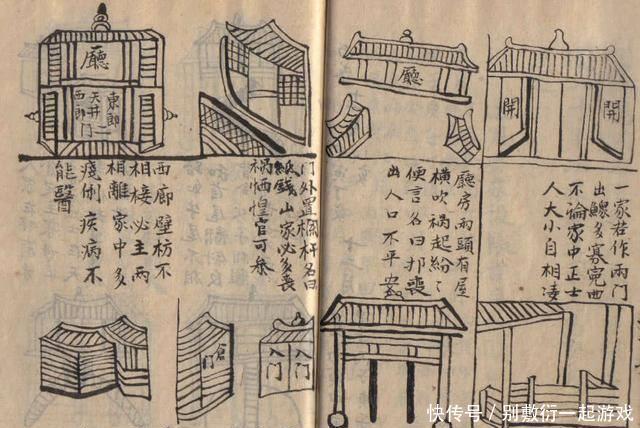 開
開
一家若作兩門
出鰥多寡冤西
不論家中正士
人大小自相凌
廳
廳房兩頭有屋
橫吹禍起紛〻
便言名曰喪
出人口不平安
門外置欄杆名曰
紙錢山家必多喪
禍恓惶官可參
廳
東郎
天井二
西郎門
西廊壁枋不
相接必主兩
相離家中多
倒疾病不
能醫
入門
入門
倉門
快传号/别敷衍一起游戏